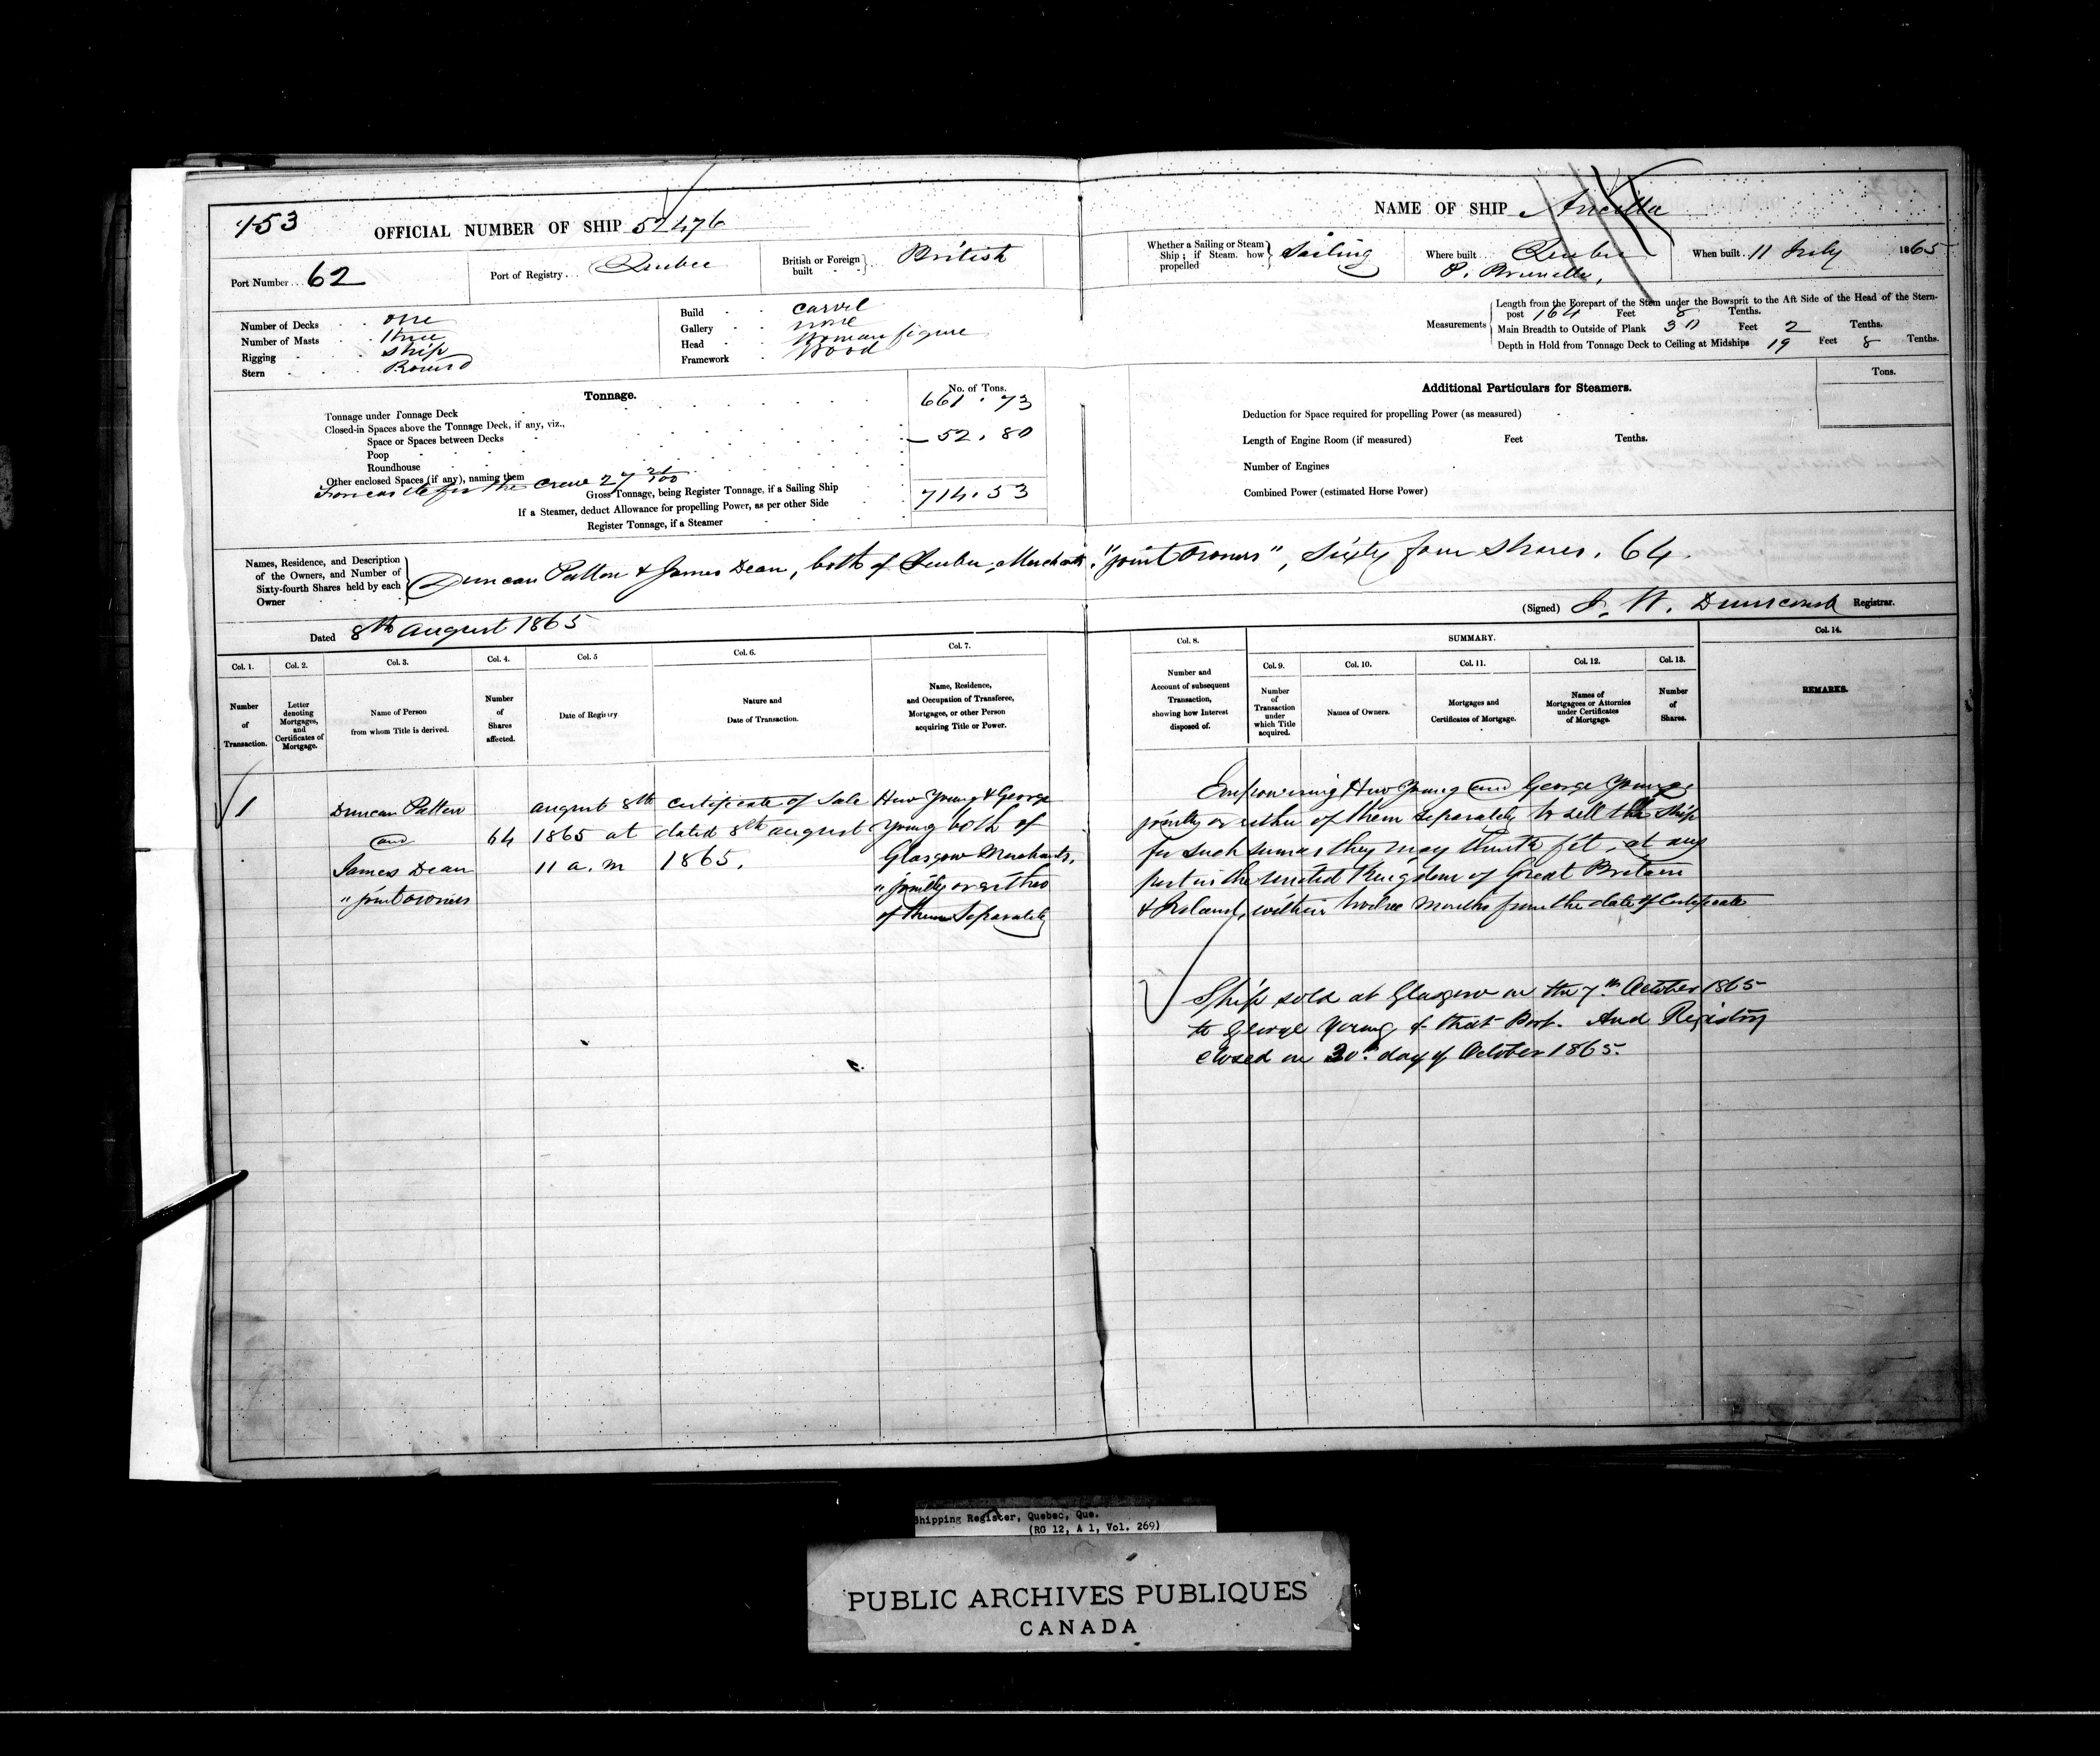 153
OFFICIAL NUMBER OF SHIP 52,476
Port Number... 62
Port of Registry... Quebec
British or Foreign built } British
Number of Decks . . one
Number of Masts . . three
Rigging . . ship
Stern . . Round
Build . . carvel
Gallery . . none
Head . . Woman figure
Framework . . Wood
Tonnage.
No. of Tons.
Tonnage under Tonnage Deck 661.73
Closed-in Spaces above the Tonnage Deck, if any, viz.,
Space or Spaces between Decks 52.80
Poop
Roundhouse
Other enclosed Spaces (if any), naming them
for the crew 27
Gross Tonnage, being Register Tonnage, if a Sailing Ship 714.53
If a Steamer, deduct Allowance for propelling Power, as per other Side
Register Tonnage, if a Steamer
NAME OF SHIP Ancilla
Whether a Sailing or Steam Ship; if Steam. how propelled } Sailing
Where built.. Quebec
P. Brunelle,
When built.. 11 July 1865
Measurements
Length from the Forepart of the Stem under the Bowsprit to the Aft Side of the Head of the Stern-
post 164 Feet 8 Tenths.
Main Breadth to Outside of Plank 30 Feet 2 Tenths.
Depth in Hold from Tonnage Deck to Ceiling at Midships 19 Feet 8 Tenths.
Additional Particulars for Steamers.
Tons.
Deduction for Space required for propelling Power (as measured)
Length of Engine Room (if measured) Feet Tenths.
Number of Engines
Combined Power (estimated Horse Power)
Names, Residence, and Description
of the Owners, and Number of
Sixty-fourth Shares held by each
Owner
Duncan Patton & James Dean, both of Quebec, Merchants, "joint owners", Sixty four shares. 64.
Dated 8th August 1865
(Signed) J. W. Dunscomb Registrar.
Col. 1.
Number
of
Transaction.
Col. 2.
Letter
denoting
Mortgages,
and
Certificates of
Mortgage.
Col. 3.
Name of Person
from whom Title is derived.
Col. 4.
Number
of
Shares
affected.
Col. 5
Date of Registry
Col. 6.
Nature and
Date of Transaction.
Col. 7.
Name, Residence,
and Occupation of Transferee,
Mortgagee, or other Person
acquiring Title or Power.
Col. 8.
Number and
Account of subsequent
Transaction,
showing how Interest
disposed of.
SUMMARY.
Col. 9.
Number
of
Transaction
under
which Title
acquired.
Col. 10.
Names of Owners.
Col. 11.
Mortgages and
Certificates of Mortgage.
Col. 12.
Names of
Mortgagees or Attornies
under Certificates
of Mortgage.
Col. 13.
Number
of
Shares.
Col. 14.
REMARKS.
1
Duncan Patton
and
James Dean
"joint owners
64
August 8th
1865 at
11 a.m
Certificate of Sale
dated 8th August
1865.
Huw Young & George
Young both of
Glasgow Merchants,
"jointly or either
of them separately
Empowering Huw Young and George Young
jointly or either of them separately to sell the ship
for such sum as they may think fit, at any
port in the United Kingdom of Great Britain
& Ireland, within twelve months from the date of Certificate
Ship sold at Glasgow on the 7th October 1865
to George Young of that Port. And Registry
closed on 30th day of October 1865.
Shipping Register, Quebec, Que.
(RG 12, A 1, Vol. 269)
PUBLIC ARCHIVES PUBLIQUES
CANADA